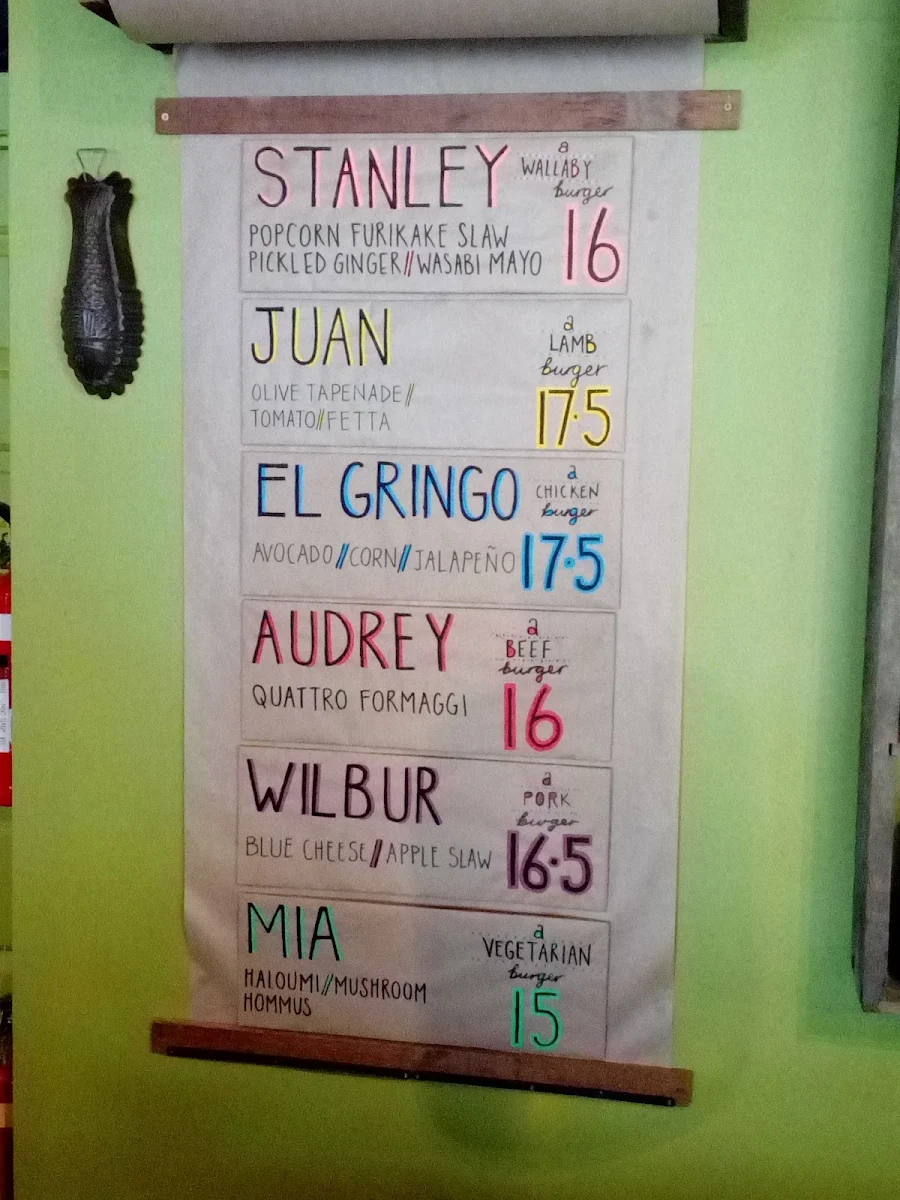 STANLEY
a
WALLABY
burger
POPCORN FURIKAKE SLAW
PICKLED GINGER//WASABI MAYO
16
JUAN
a
LAMB
burger
OLIVE TAPENADE//
TOMATO//FETTA
17.5
EL GRINGO
a
CHICKEN
burger
AVOCADO//CORN//JALAPEÑO
17.5
AUDREY
a
BEEF
burger
QUATTRO FORMAGGI
16
WILBUR
a
PORK
burger
BLUE CHEESE//APPLE SLAW
16.5
MIA
a
VEGETARIAN
burger
HALOUMI//MUSHROOM
HOMMUS
15